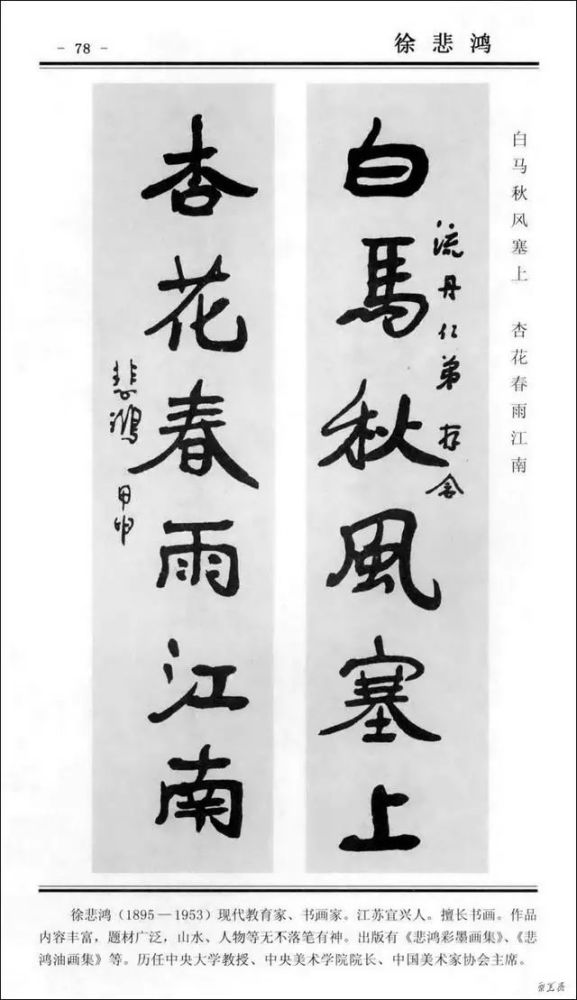 - 78 -
徐悲鸿
白马秋风塞上 杏花春雨江南
流丹仁弟存念
白馬秋風塞上
杏花春雨江南
悲鴻 甲申
徐悲鸿（1895—1953）现代教育家、书画家。江苏宜兴人。擅长书画。作品
内容丰富，题材广泛，山水、人物等无不落笔有神。出版有《悲鸿彩墨画集》、《悲
鸿油画集》等。历任中央大学教授、中央美术学院院长、中国美术家协会主席。